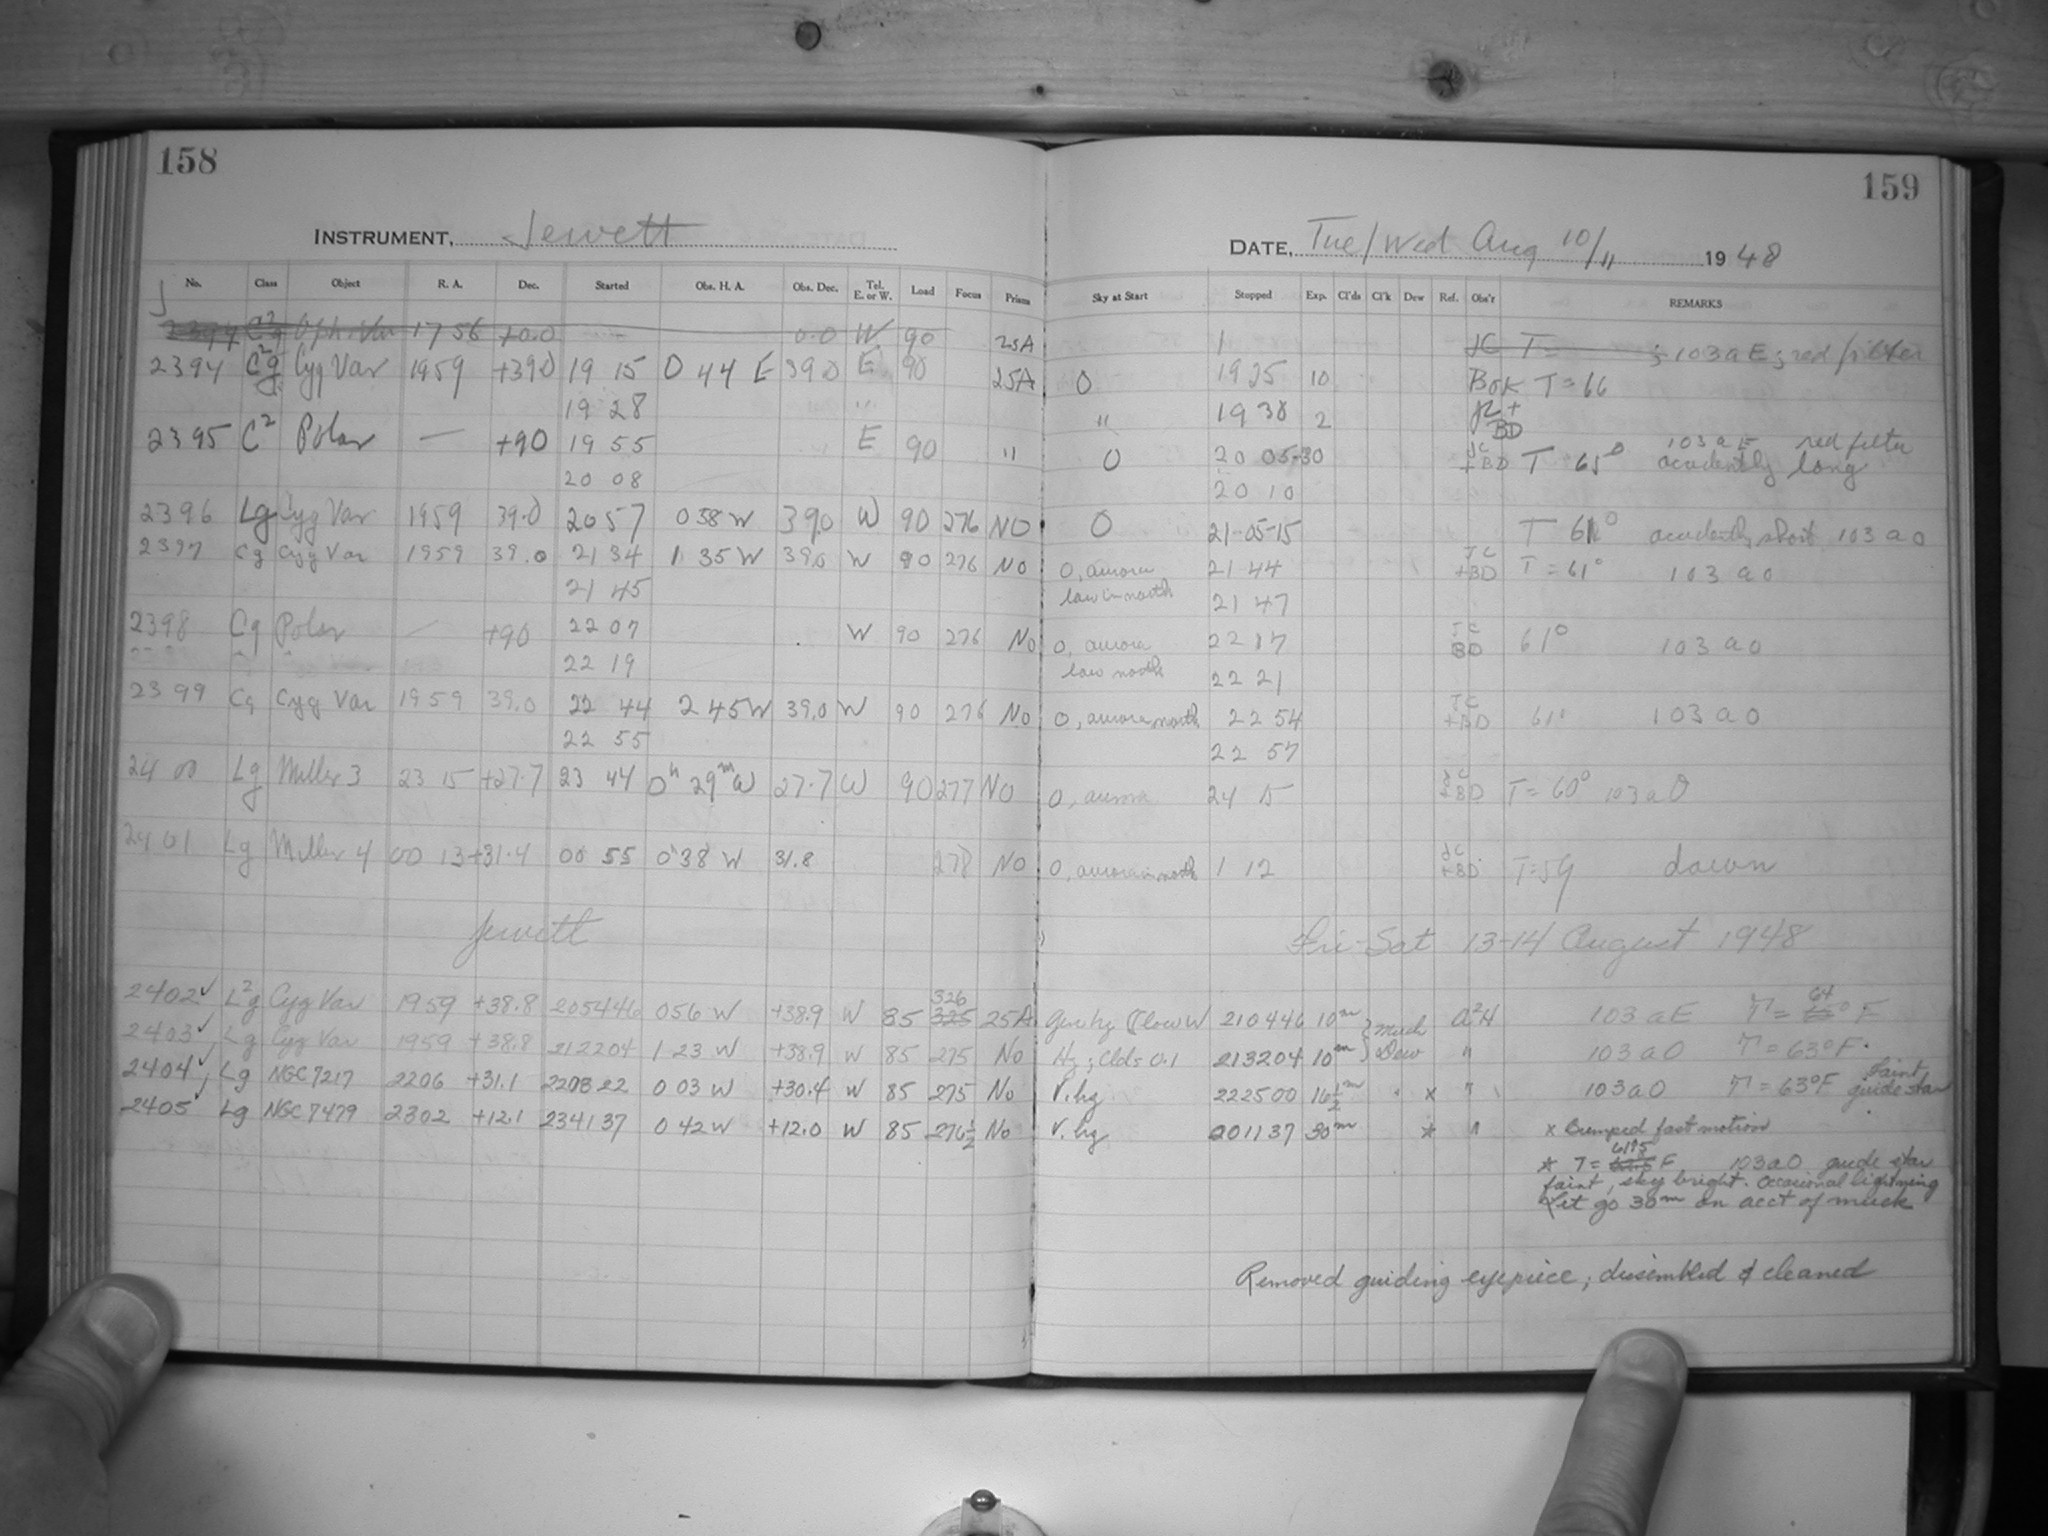 158
159
INSTRUMENT, Jewett
DATE, Tue/Wed Aug 10/11 1948
No. Class Object R. A. Dec. Started Obs. H. A. Obs. Dec. Tel. E. or W. Load Focus Prism Sky at Start Stopped Exp. Cl'ds Cl'k Dew Ref. Obs'r REMARKS
2394 C²g Oph. Var 17 56 +0.0 0.0 W 90 25A 1 JC T= ; 103aE; red filter
2394 C²g Cyg Var 1959 +39.0 19 15 0 44 E 39.0 E 90 25A 0 19 25 10 BOK T=66
19 28 " " 19 38 2 JC + BD
2395 C² Polar — +90 19 55 E 90 " 0 20 05-30 JC +BD T 65° 103aE red filter accidently long
20 08 20 10
2396 Lg Cyg Var 1959 39.0 20 57 0 38 W 39.0 W 90 276 NO 0 21-05-15 T 61° accidently short 103a0
2397 Cg Cyg Var 1959 39.0 21 34 1 35 W 39.0 W 90 276 NO 0, aurora low in north 21 44 JC +BD T = 61° 103a0
21 45 21 47
2398 Cg Polar — +90 22 07 W 90 276 No 0, aurora low north 22 17 JC BD 61° 103a0
22 19 22 21
2399 Cg Cyg Var 1959 39.0 22 44 2 45 W 39.0 W 90 276 No 0, aurora north 22 54 JC +BD 61° 103a0
22 55 22 57
2400 Lg Miller 3 23 15 +27.7 23 44 0ʰ 29ᵐ W 27.7 W 90 277 NO 0, aurora 24 15 JC +BD T= 60° 103a0
2401 Lg Miller 4 00 13 +31.4 00 55 0ʰ38 W 31.8 278 NO 0, aurora in north 1 12 JC +BD T=59 dawn
Jewett Fri-Sat 13-14 August 1948
2402✓ L²g Cyg Var 1959 +38.8 205446 056 W +38.9 W 85 325 326 25A 210446 10ᵐ } Much Dew a²H 103aE T= 64° F
2403✓ Lg Cyg Var 1959 +38.8 212204 1 23 W +38.9 W 85 275 No Hz; Clds 0.1 213204 10ᵐ " 103a0 T = 63°F.
2404✓ Lg NGC 7217 2206 +31.1 220822 0 03 W +30.4 W 85 275 No V. hzy 222500 16½ᵐ x " 103a0 T = 63°F faint guide star
2405 Lg NGC 7479 2302 +12.1 234137 0 42 W +12.0 W 85 276½ No V. hzy 001137 30ᵐ * " x Bumped fast motion
* T= 61.5 F 103a0 guide star
faint, sky bright. Occasional lightning
Let go 30ᵐ on acct of muck
Removed guiding eyepiece; dissembled & cleaned